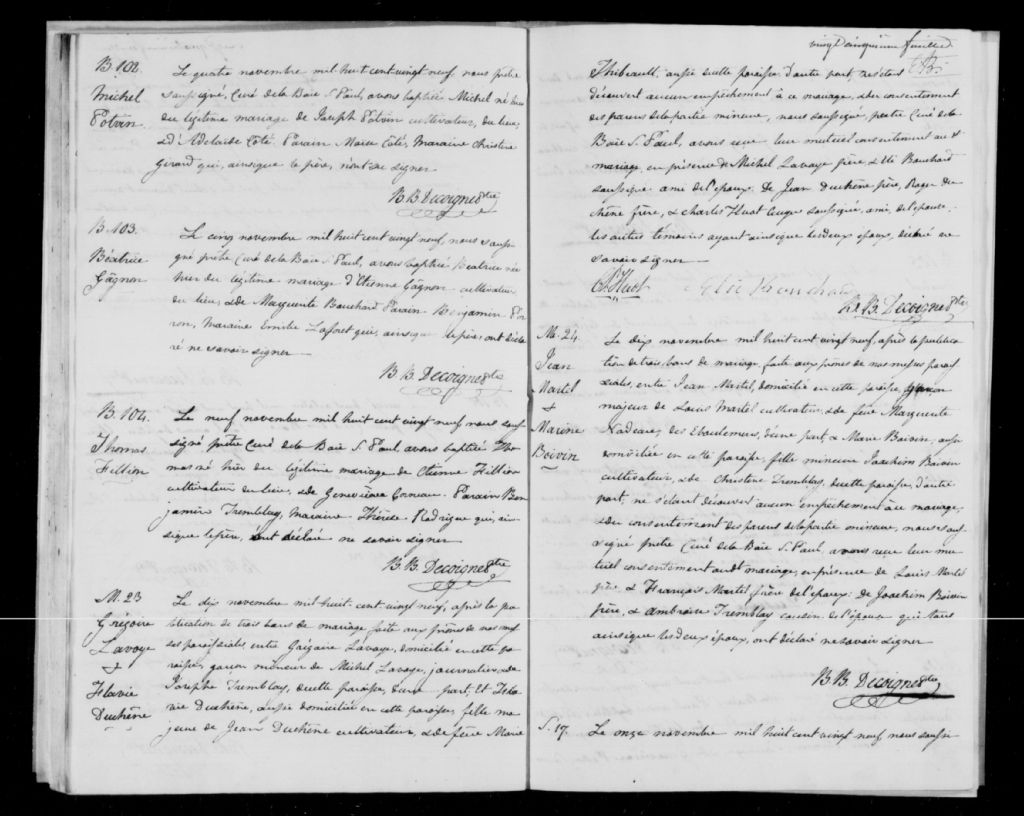 B. 102.
Michel
Potvin
Le quatre novembre mil huit cent vingt neuf, nous prêtre
soussigné, Curé de la Baie S. Paul, avons baptisé Michel né hier
du légitime mariage de Joseph Potvin cultivateur, du lieu,
& d'Adelaide Coté. Parain Moïse Coté, Maraine Christine
Girard qui, ainsique le père, n'ont su signer
B. B. Decoigne Ptre
B. 103.
Béatrice
Gagnon
Le cinq novembre mil huit cent vingt neuf, nous soussi-
gné prêtre Curé de la Baie S. Paul, avons baptisé Béatrice née
hier du légitime mariage d'Etienne Gagnon cultivateur
du lieu, & de Marguerite Bouchard Parain Benjamin
Maraine Emilie Laforet qui, ainsique le père, ont décla
ré ne savoir signer
B. B. Decoigne Ptre
B. 104.
Thomas
Fillion
Le neuf novembre mil huit cent vingt neuf nous sous-
signé prêtre Curé de la Baie S. Paul avons baptisé Tho
mas né hier du légitime mariage de Etienne Fillion
cultivateur du lieu, & de Genevieve Parain Ben
jamin Tremblay, Maraine Thérèse Rodrigue qui, ain-
sique le père, ont déclaré ne savoir signer
B. B. Decoigne Ptre
M. 23
Grégoire
Lavoye
&
Flavie
Duchêne
Le dix novembre mil huit cent vingt neuf, après la pu
blication de trois bans de mariage faite aux prônes de nos mes
ses paroissiales, entre Grégoire Lavoye, domicilié en cette pa
roisse, garçon mineur de Michel Lavoye, journalier, & de
Josephe Tremblay, de cette paroisse, d'une part, Et Fla
vie Duchêne, aussi domiciliée en cette paroisse, fille ma
jeure de Jean Duchêne cultivateur, & de feue Marie
vingt cinquième feuillet
Thibeault, aussi de cette paroisse d'autre part, ne s'étant
découvert aucun empêchement à ce mariage, & du consentement
des parens de la partie mineure, nous soussigné, prêtre Curé de la
Baie S. Paul, avons reçu leur mutuel consentement au dt
mariage, en présence de Michel Lavoye père, & Elie Bouchard
soussigné ami de l'époux: De Jean Duchêne père, Roger Du
chêne frère, & Charles Huot soussigné, ami, de l'épouse,
les autres témoins ayant ainsique les deux époux, déclaré ne
savoir signer
Ch. Huot Elie Bouchard
B. B. Decoigne Ptre
M. 24.
Jean
Martel
&
Marine
Boivin
Le dix novembre mil huit cent vingt neuf, après la publica
tion de trois bans de mariage, faite aux prônes de nos messes parois
siales, entre Jean Martel, domicilié en cette paroisse, garçon
majeur de Louis Martel cultivateur, & de feue Marguerite
Nadeau, des Eboulemens, d'une part, & Marie Boivin, aussi
domiciliée en cette paroisse, fille mineure Joachim Boivin
cultivateur, & de Christine Tremblay, de cette paroisse, d'autre
part, ne s'étant découvert aucun empêchement à ce mariage,
& du consentement des parens de la partie mineure, nous sous
signé prêtre Curé de la Baie S. Paul, avons reçu leur mu
tuel consentement au dt mariage, en présence de Louis Martel
père, & François Martel frère de l'époux: De Joachim Boivin
père, & Ambroise Tremblay cousin de l'épouse qui tous
ainsique les deux époux, ont déclaré ne savoir signer
B. B. Decoigne Ptre
S. 17.
Le onze novembre mil huit cent vingt neuf nous soussi